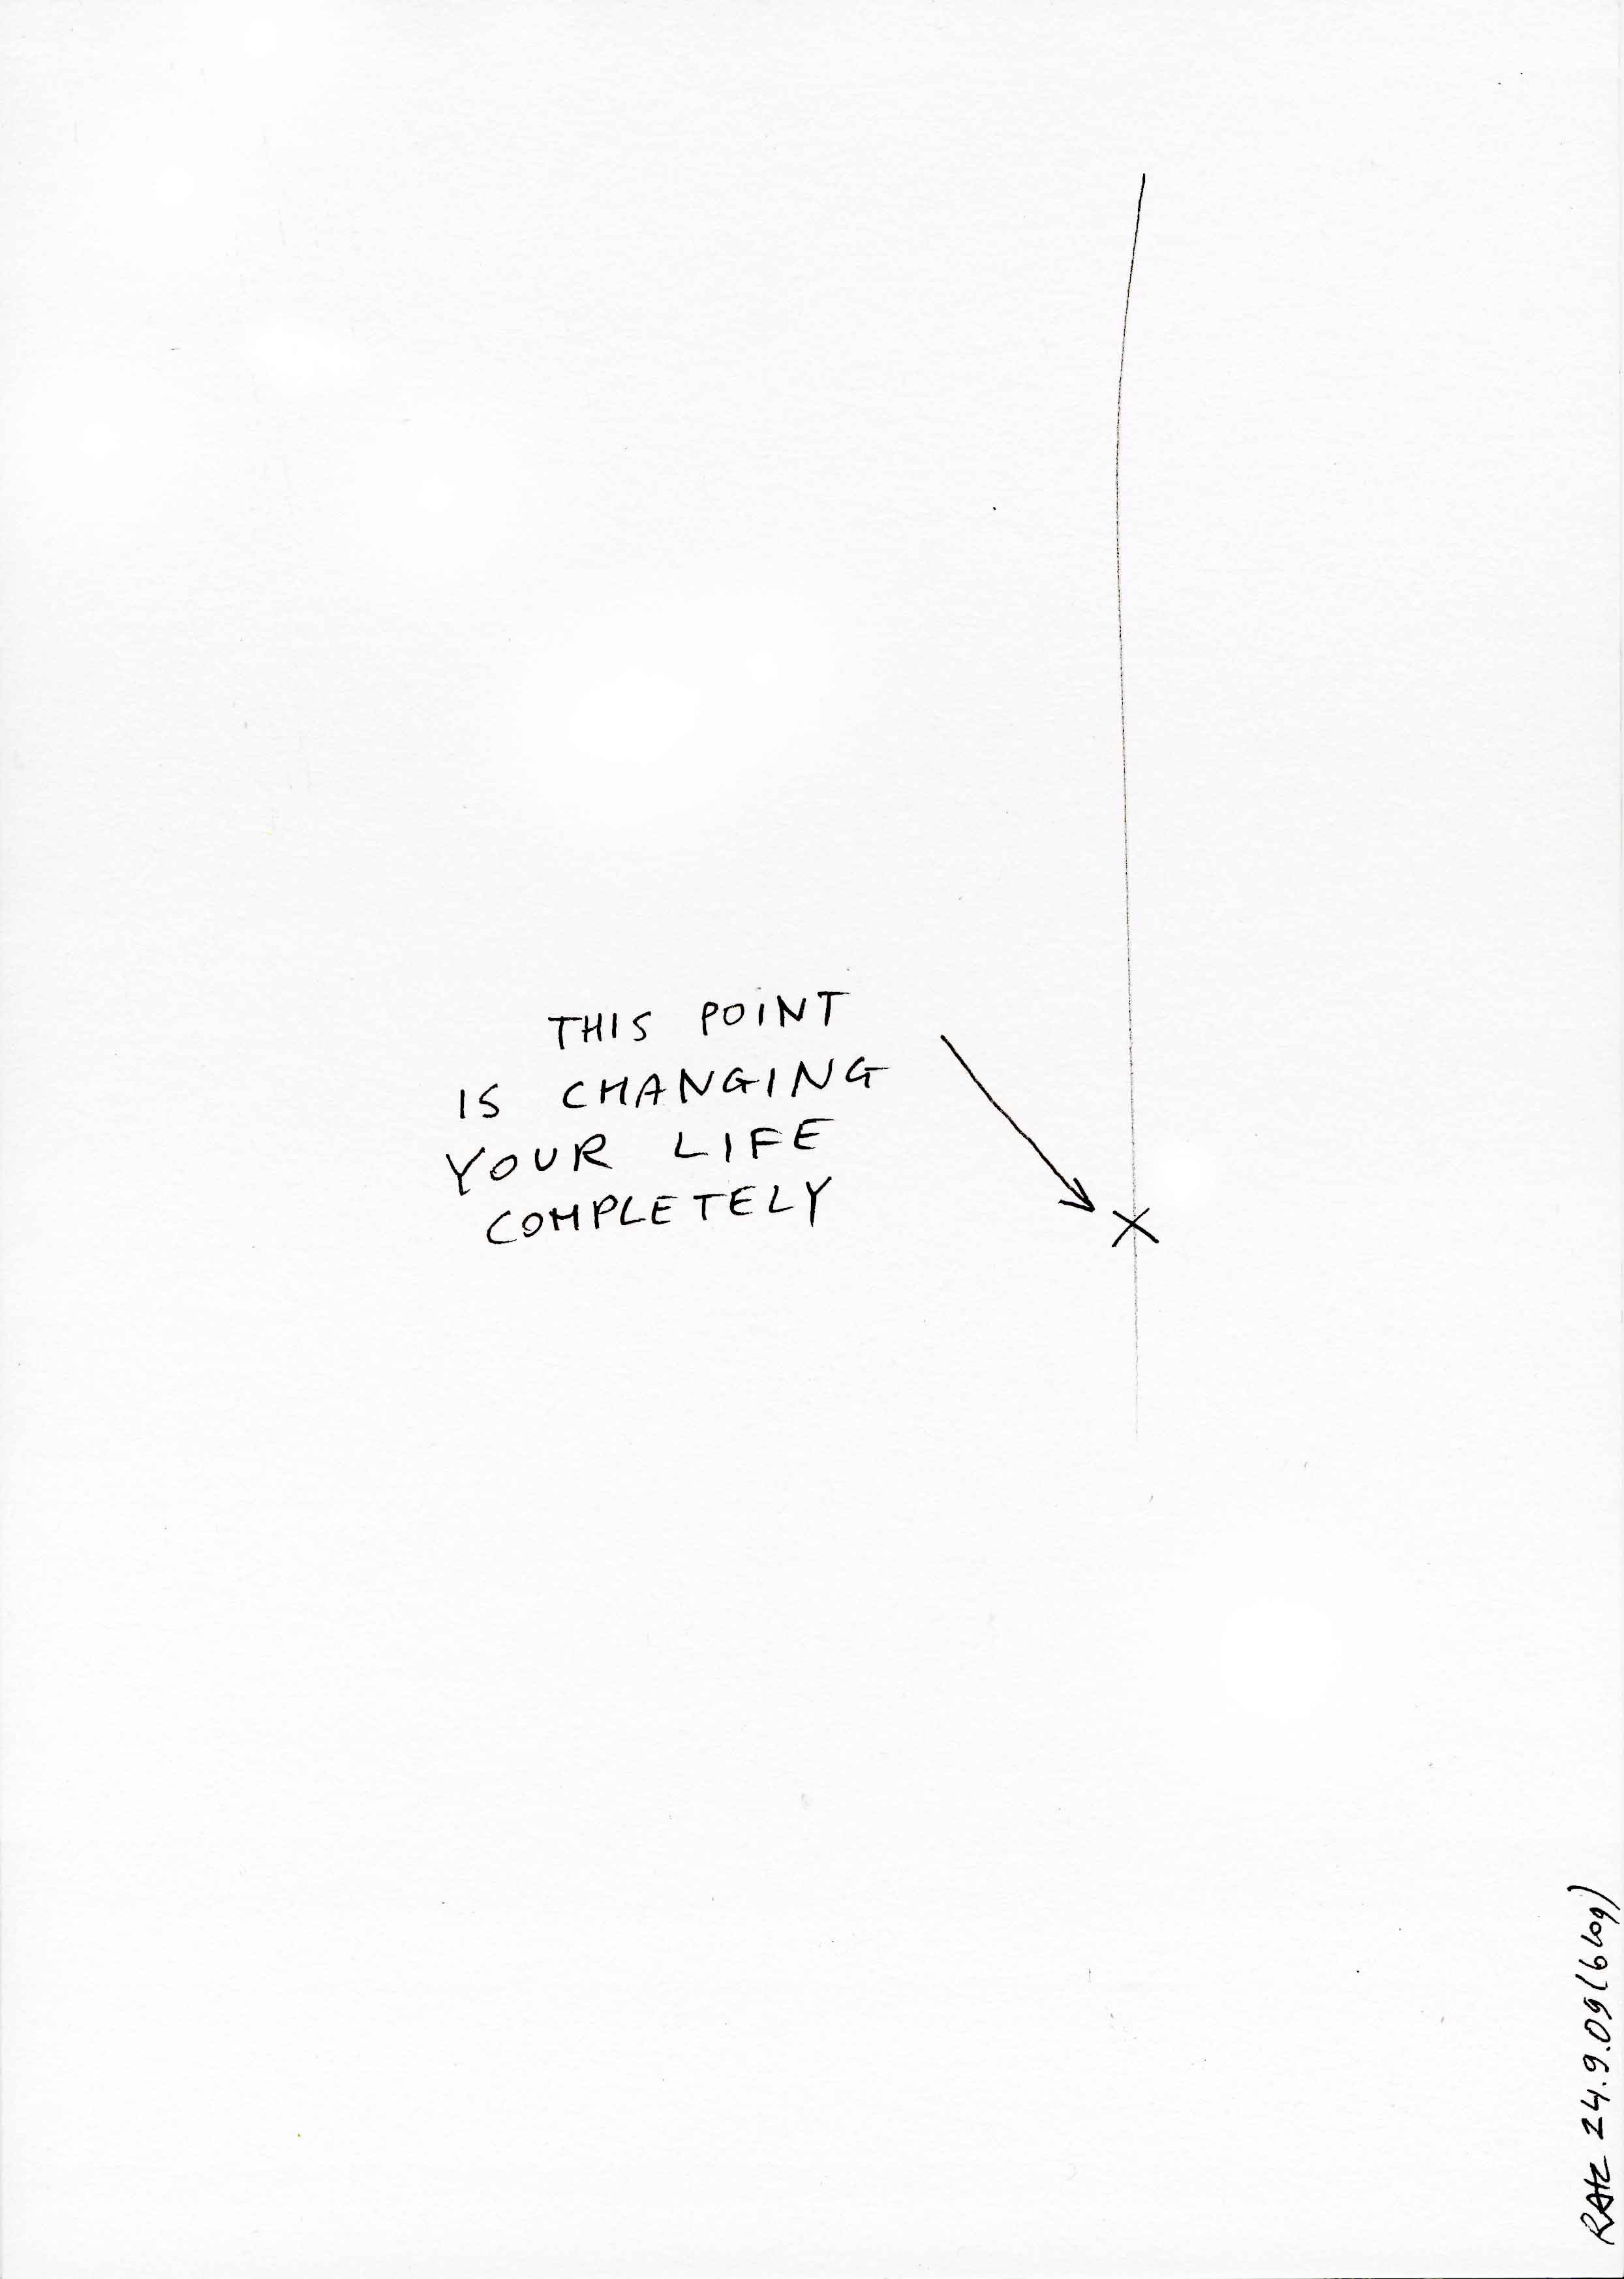 THIS POINT
IS CHANGING
YOUR LIFE
COMPLETELY
24.9.09 (blog)